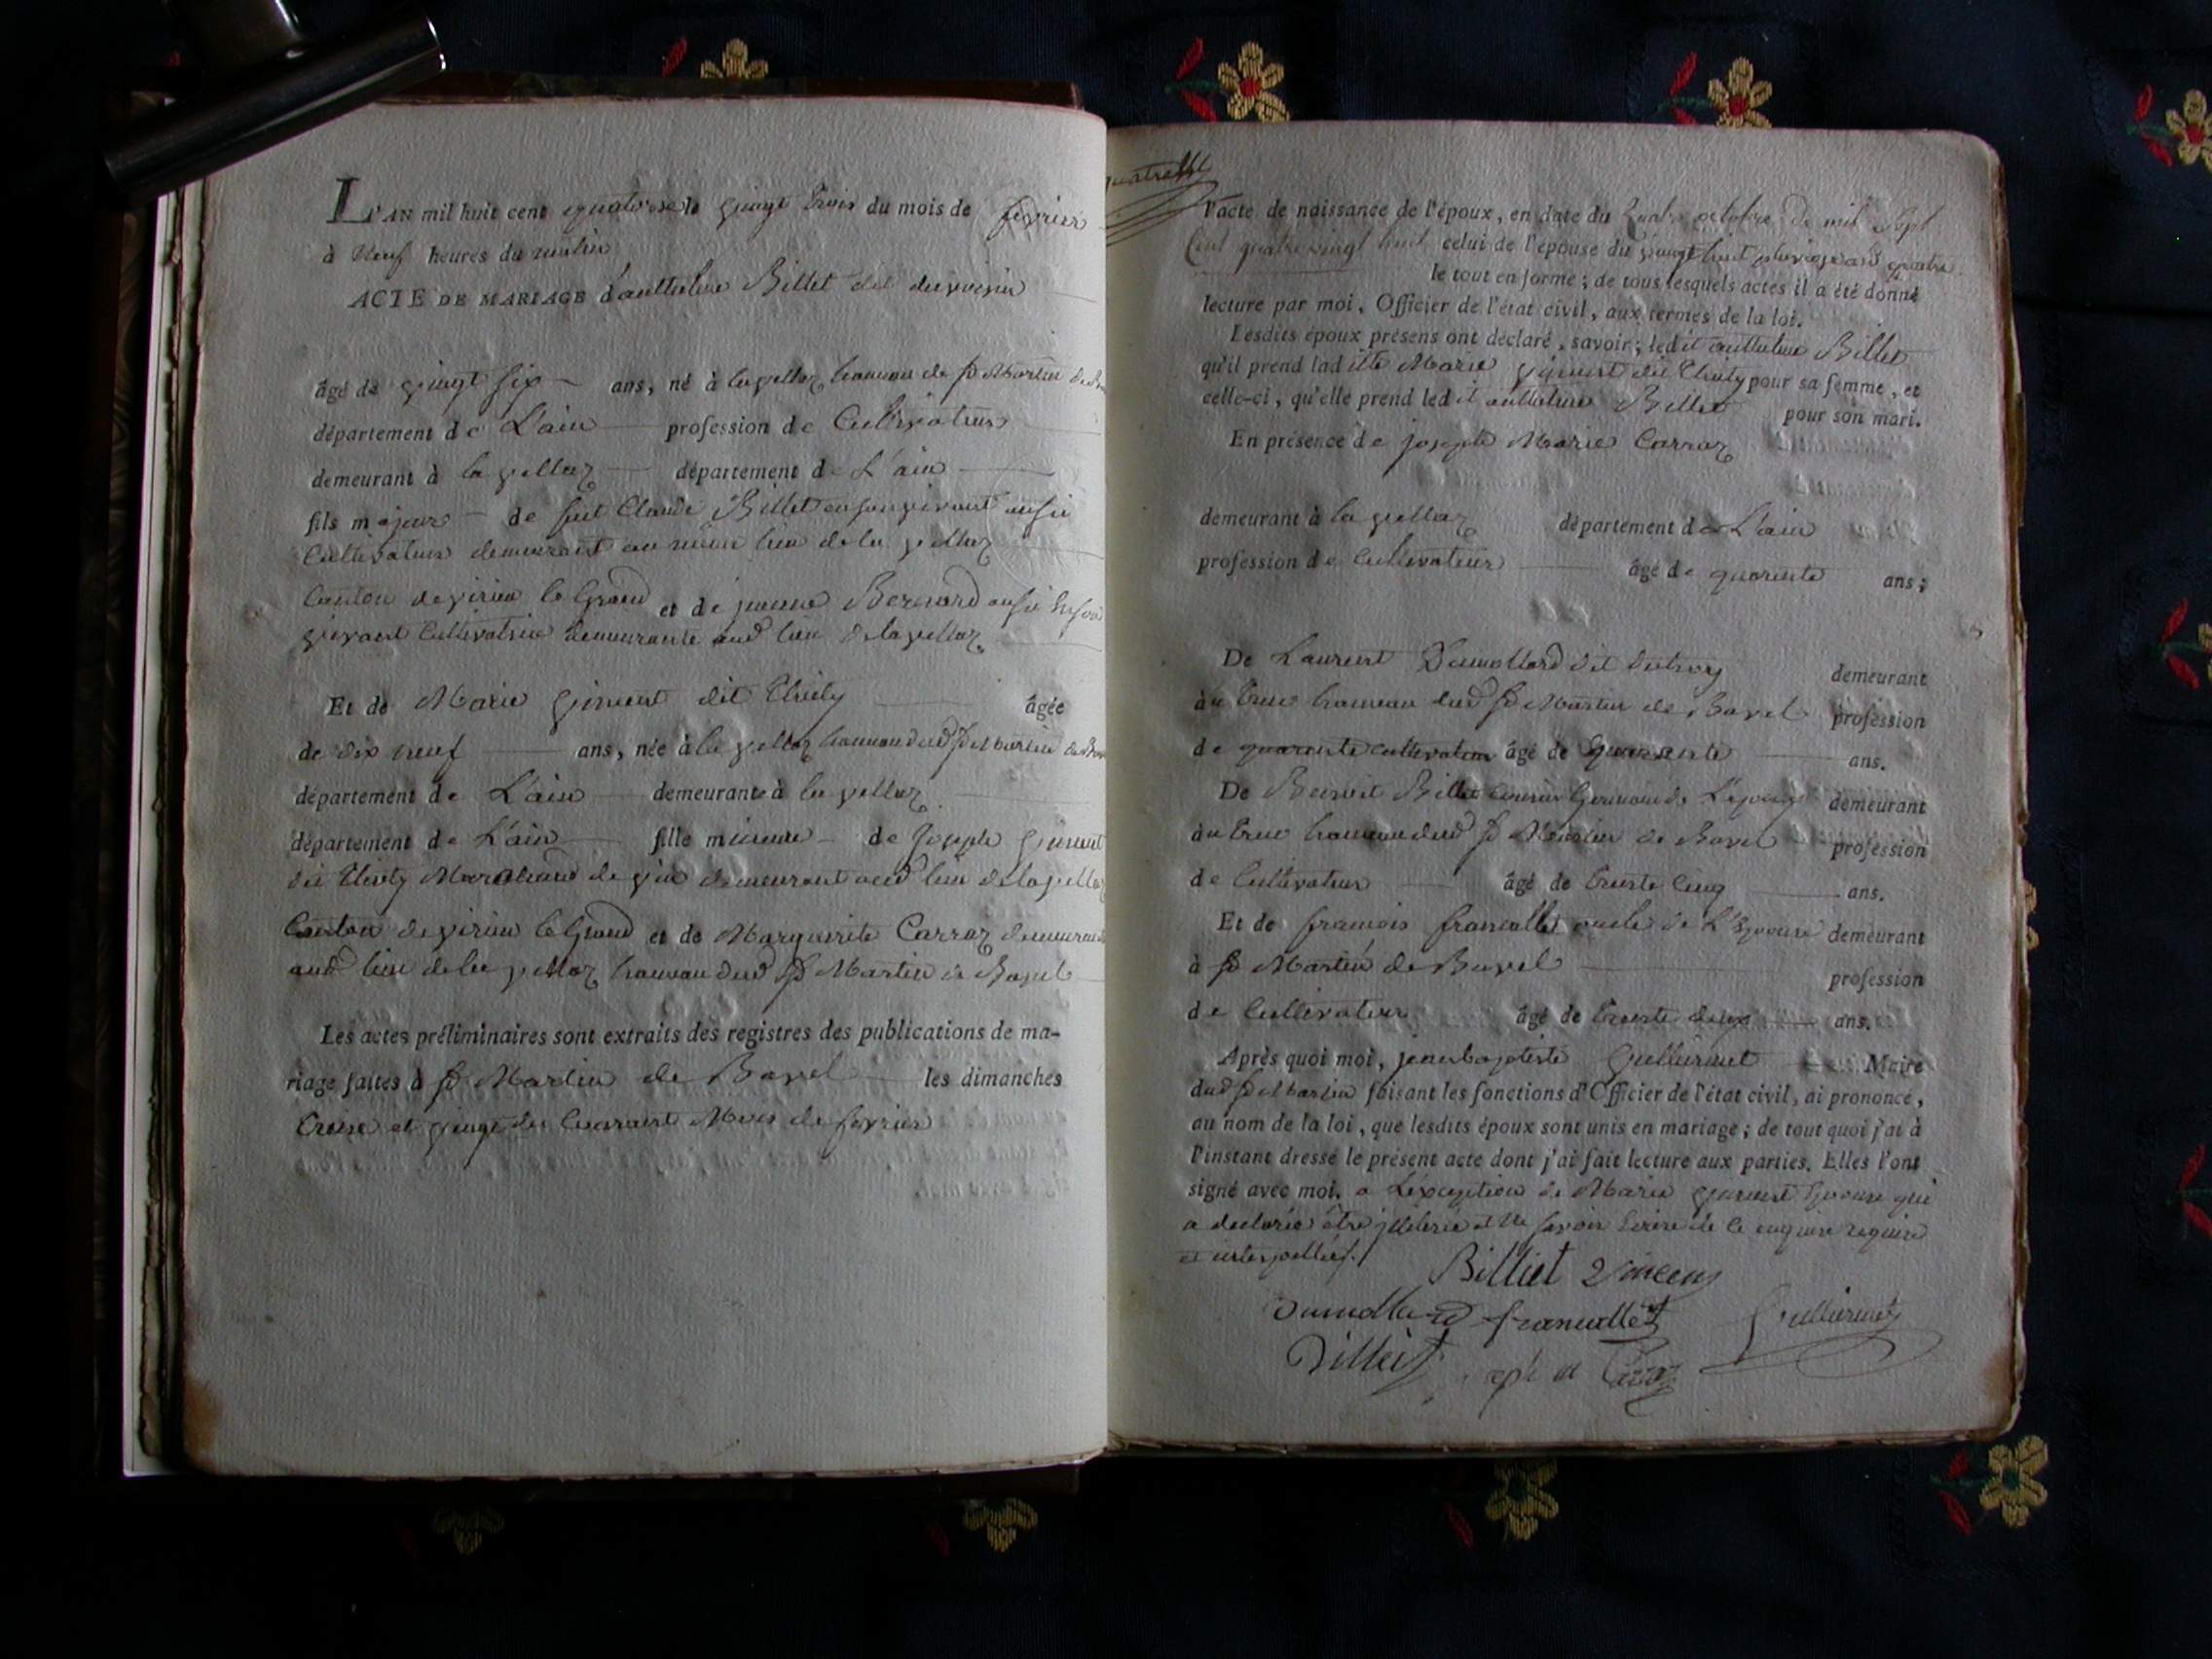 L'AN mil huit cent quatorze le vingt trois du mois de fevrier
à Neuf heures du matin
ACTE DE MARIAGE d'anthelme Billet dit
âgé de vingt six ans, né à lavellaz hameau de St Martin de
département de L'ain profession de Cultivateur
demeurant à la vellaz département de L'ain
fils majeur de feut Claude Billet en son vivant aussi
Cultivateur demeurant au même lieu de la vellaz
Canton de virieu le Grand et de jeanne Bernard aussi
vivant Cultivatrice demeurante aud lieu de lavellaz
Et de Marie vincent dit Thiety âgée
de dix neuf ans, née à la vellaz hameau dud St Martin
département de L'ain demeurante à la vellaz
département de L'ain fille mineure de Joseph vincent
dit Thiety Marchand de vin demeurant aud lieu de lavellaz
Canton de virieu le Grand et de Marguerite Carraz demeurant
aud lieu de la vellaz hameau dud St Martin de Bavel
Les actes préliminaires sont extraits des registres des publications de ma-
riage faites à St Martin de Bavel les dimanches
treize et vingt du Courant Mois de fevrier
l'acte de naissance de l'époux, en date du quatre octobre de mil sept
Cent quatre vingt huit celui de l'épouse du vingt huit pluviose an quatre
le tout en forme; de tous lesquels actes il a été donné
lecture par moi, Officier de l'état civil, aux termes de la loi.
Lesdits époux présens ont déclaré, savoir; led it anthelme Billet
qu'il prend lad itte Marie vincent dit Thiety pour sa femme, et
celle-ci, qu'elle prend led it anthelme Billet pour son mari.
En présence de joseph Marie Carraz
demeurant à la vellaz département de L'ain
profession de Cultivateur âgé de quarente ans;
De Laurent Dumollard dit demeurant
à hameau dud St Martin de Bavel profession
de quarente cultivateur âgé de quarente ans.
De Benoit Billet cousin Germain de L'epoux demeurant
à hameau dud St Martin de Bavel profession
de Cultivateur âgé de trente Cinq ans.
Et de francois francallet oncle de L'Epouse demeurant
à St Martin de Bavel profession
de Cultivateur âgé de trente deux ans.
Après quoi moi, jean baptiste Gullierme Maire
dud St Martin faisant les fonctions d'Officier de l'état civil, ai prononcé,
au nom de la loi, que lesdits époux sont unis en mariage; de tout quoi j'ai à
l'instant dressé le présent acte dont j'ai fait lecture aux parties. Elles l'ont
signé avec moi, a L'exception de Marie vincent Epouse qui
a declarée être illiterée et Ne savoir Ecrire de ce enquise requise
et interpellée.
Billiet Vincent
Dumollard francallet
Billiet